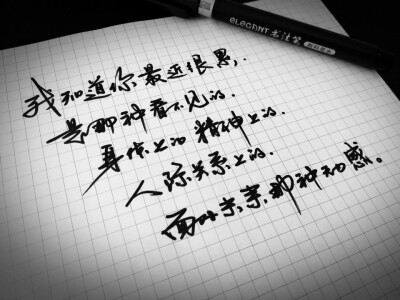 ELEGANT 书法笔
我知道你最近很累,
是那种看不见的.
身体上的 精神上的.
人际关系上的.
面对未来那种无力感。